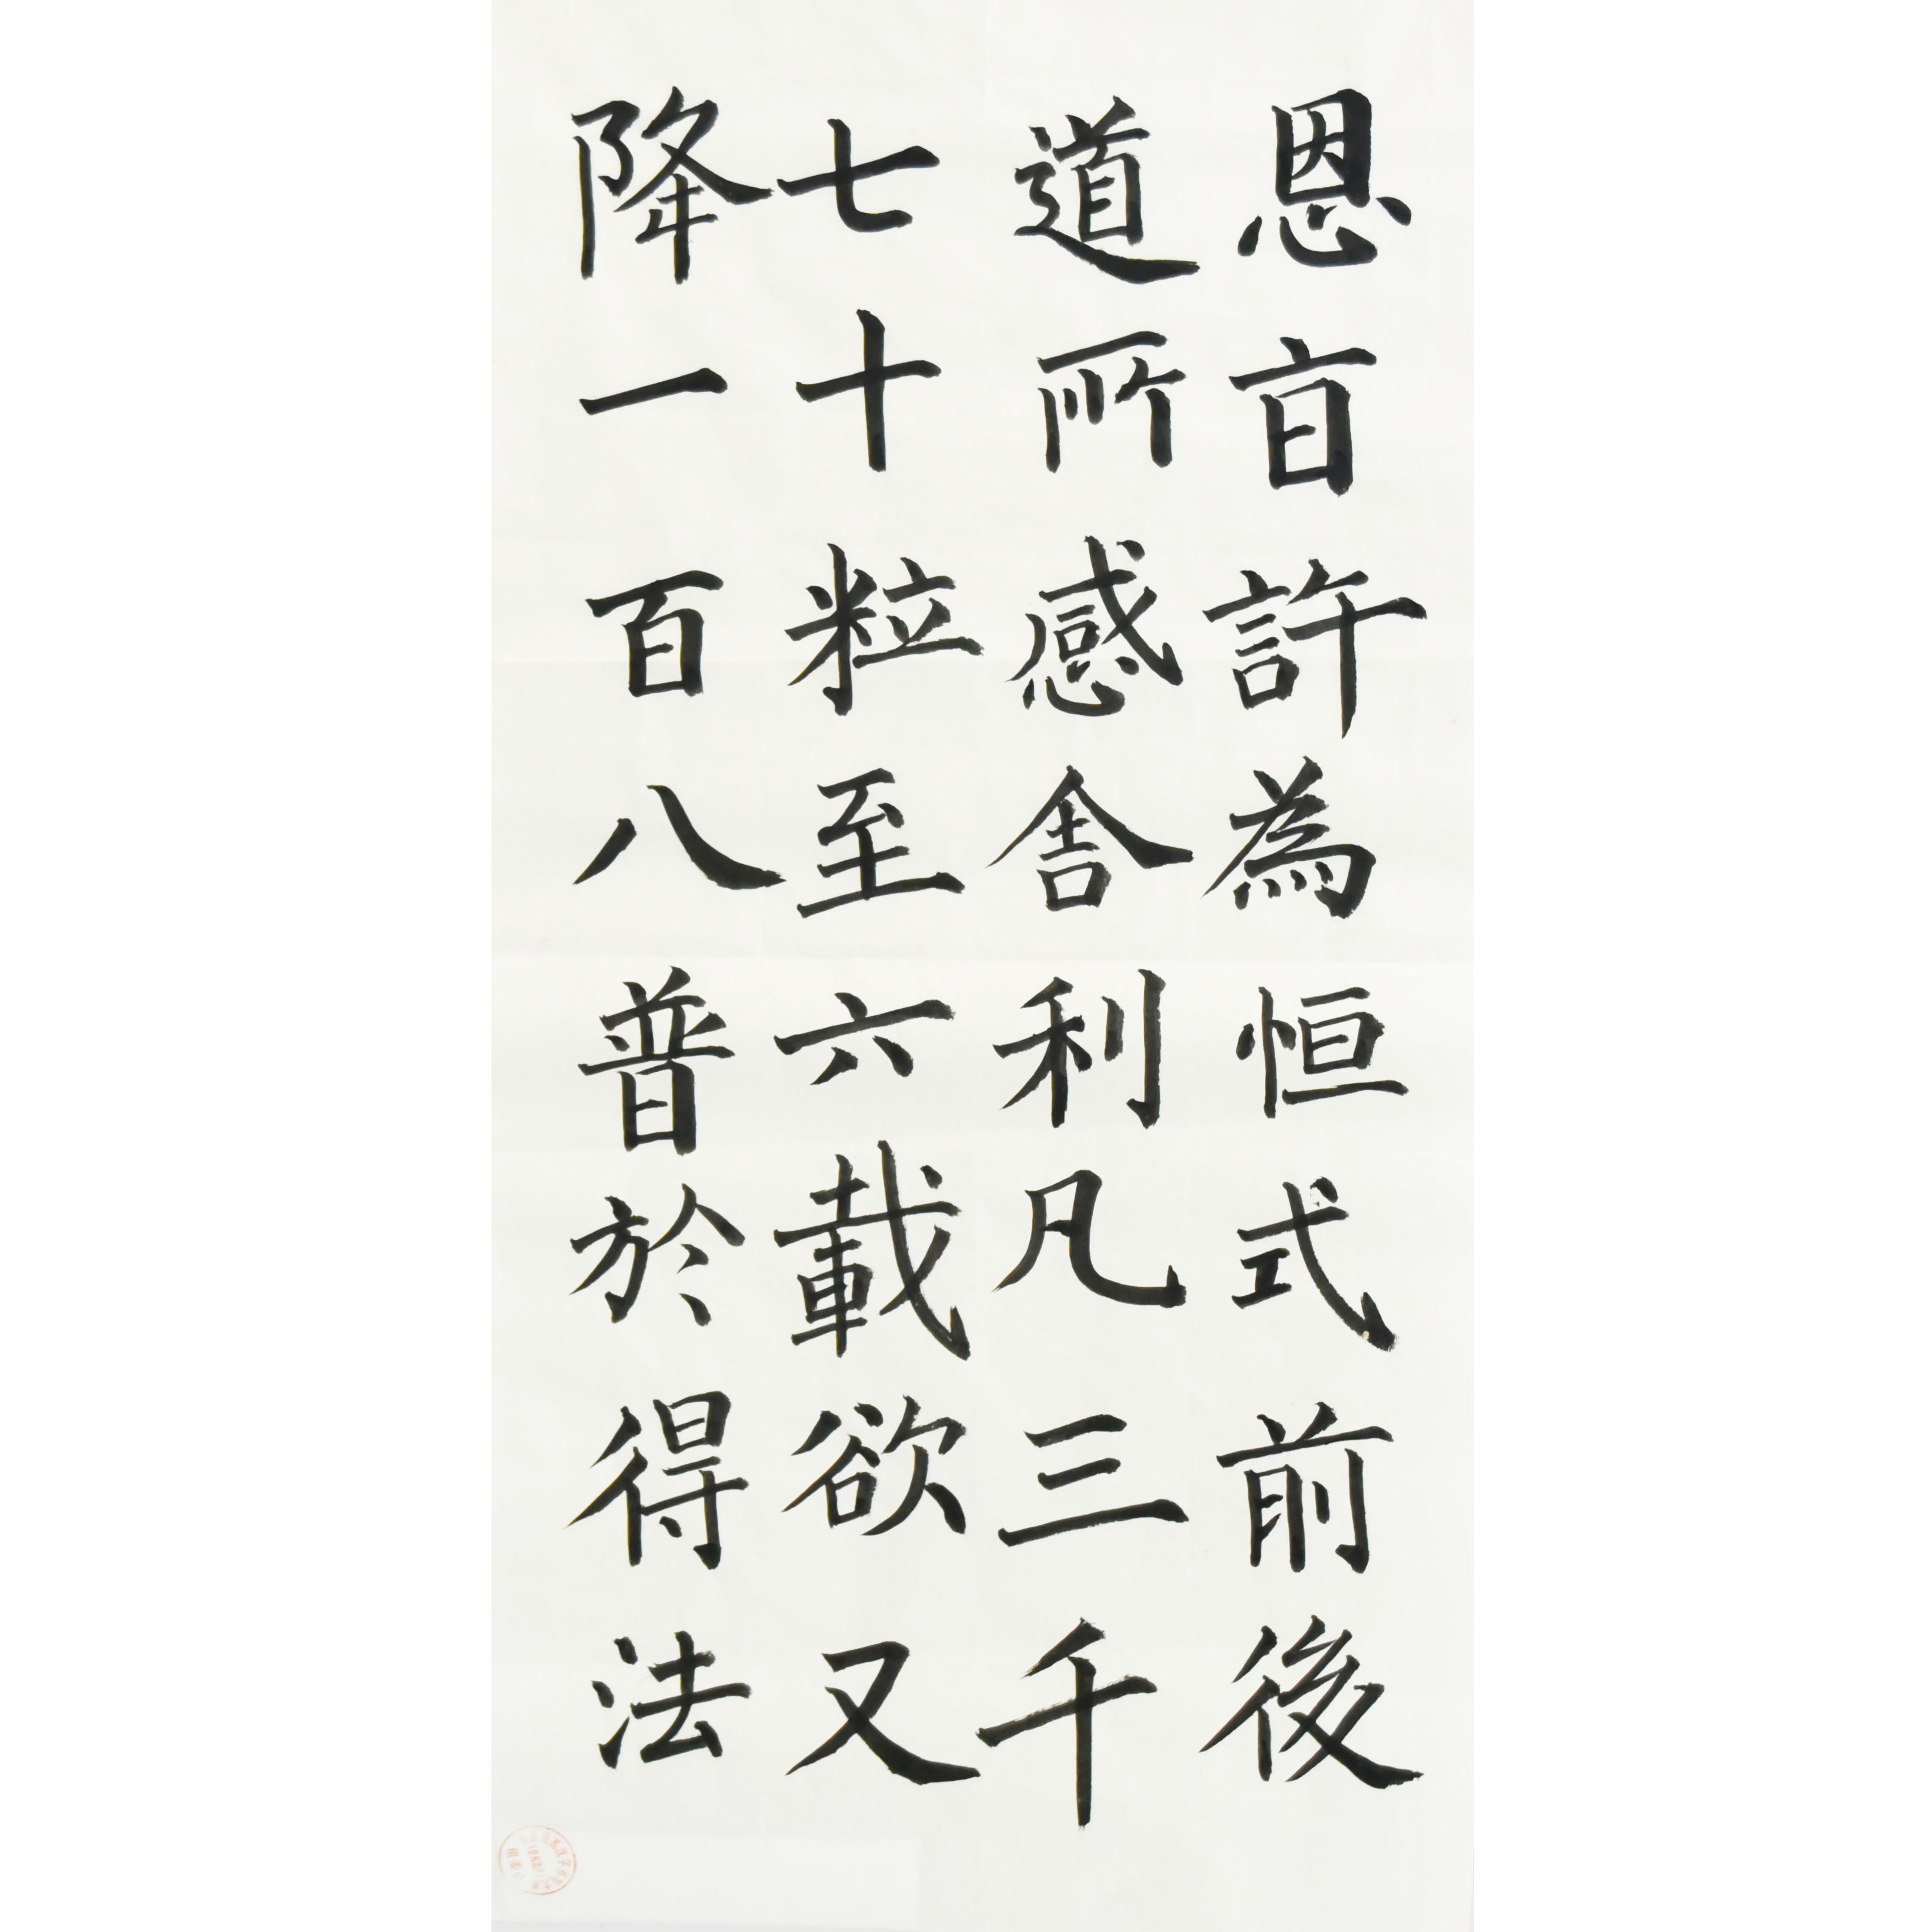 恩旨許為恒式前後
道所感舍利凡三千
七十粒至六載欲又
降一百八普於得法